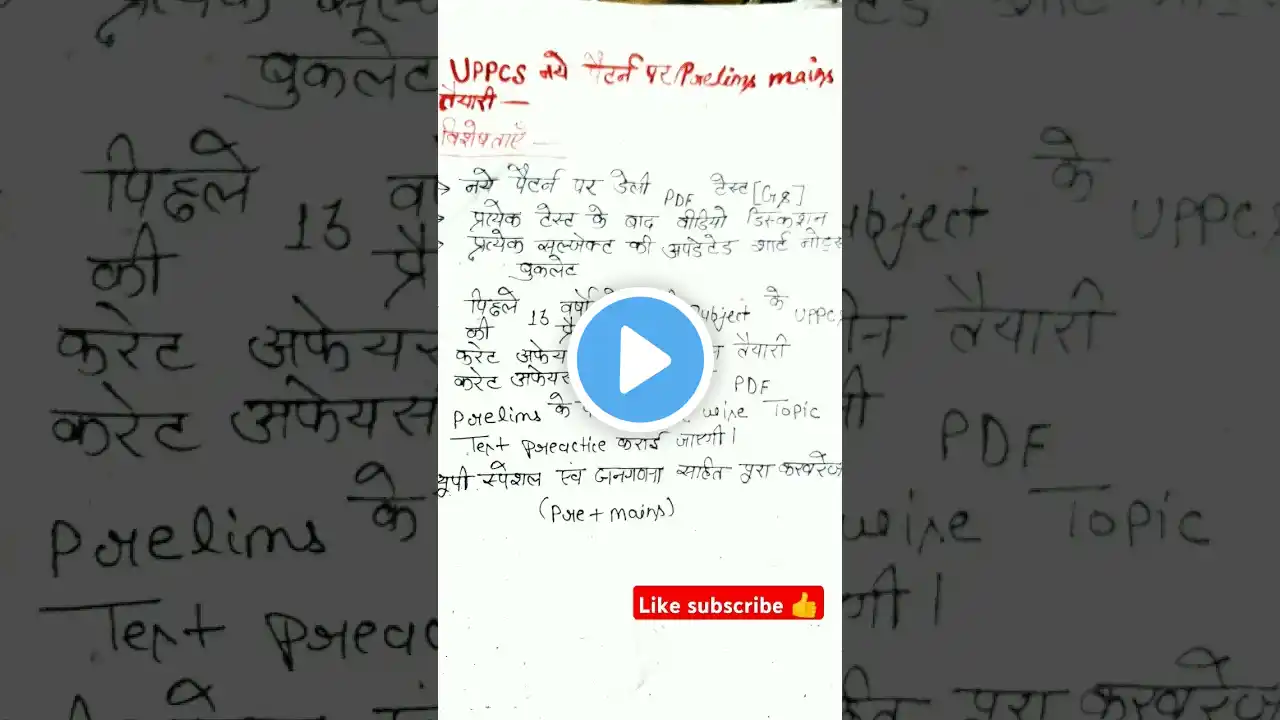 UPPCS नये पैटर्न पर Prelims mains
तैयारी —
विशेषताएँ —
→ नये पैटर्न पर डेली PDF टेस्ट [GS]
प्रत्येक टेस्ट के बाद वीडियो डिस्कशन
प्रत्येक सब्जेक्ट की अपडेटेड शार्ट नोट्स
बुकलेट
पिछले 13 वर्षों Subject के UPPCS
की
करेंट अफेयर्स तैयारी
करेंट अफेयर्स PDF
Prelims के wise Topic
Test Preactice कराई जाएगी।
यूपी स्पेशल एवं जनगणना सहित पूरा करवरेज
(Pre + mains)
Like subscribe 👍